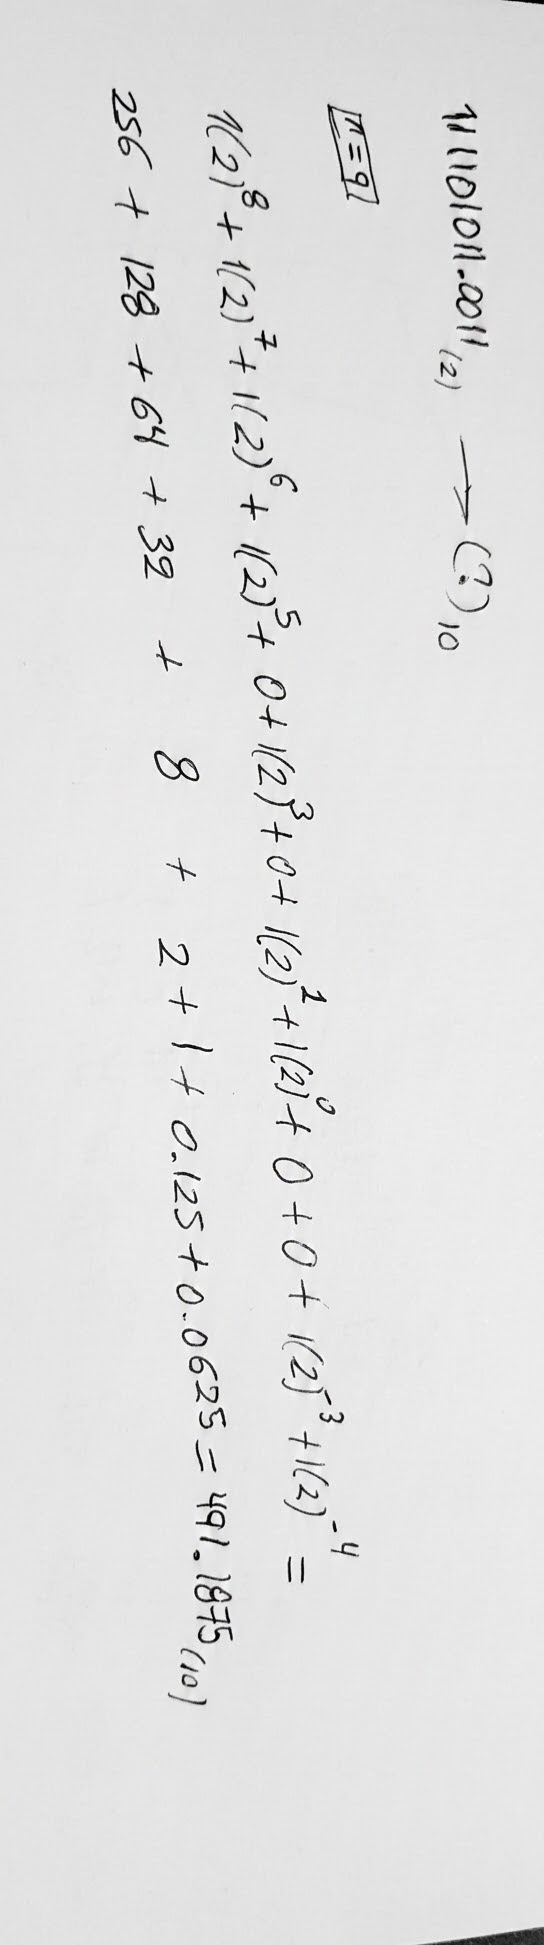 111101011.0011₍₂₎ → (?)₁₀
n=9
1(2)⁸ + 1(2)⁷ + 1(2)⁶ + 1(2)⁵ + 0 + 1(2)³ + 0 + 1(2)¹ + 1(2)⁰ + 0 + 0 + 1(2)⁻³ + 1(2)⁻⁴ =
256 + 128 + 64 + 32 + 8 + 2 + 1 + 0.125 + 0.0625 = 491.1875₍₁₀₎